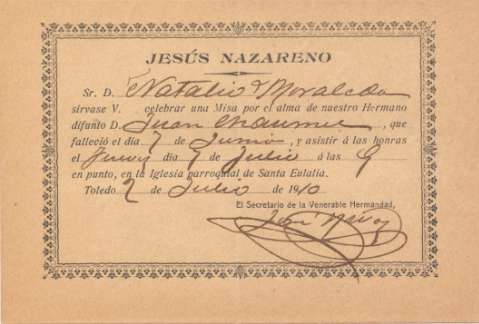 JESÚS NAZARENO
Sr. D. Natalio Moraleda
sírvase V. celebrar una Misa por el alma de nuestro Hermano
difunto D. Juan , que
falleció el día 7 de Junio, y asistir á las honras
el Jueves día 7 de Julio á las 9
en punto, en la Iglesia parroquial de Santa Eulalia.
Toledo 2 de Julio de 1910
El Secretario de la Venerable Hermandad,